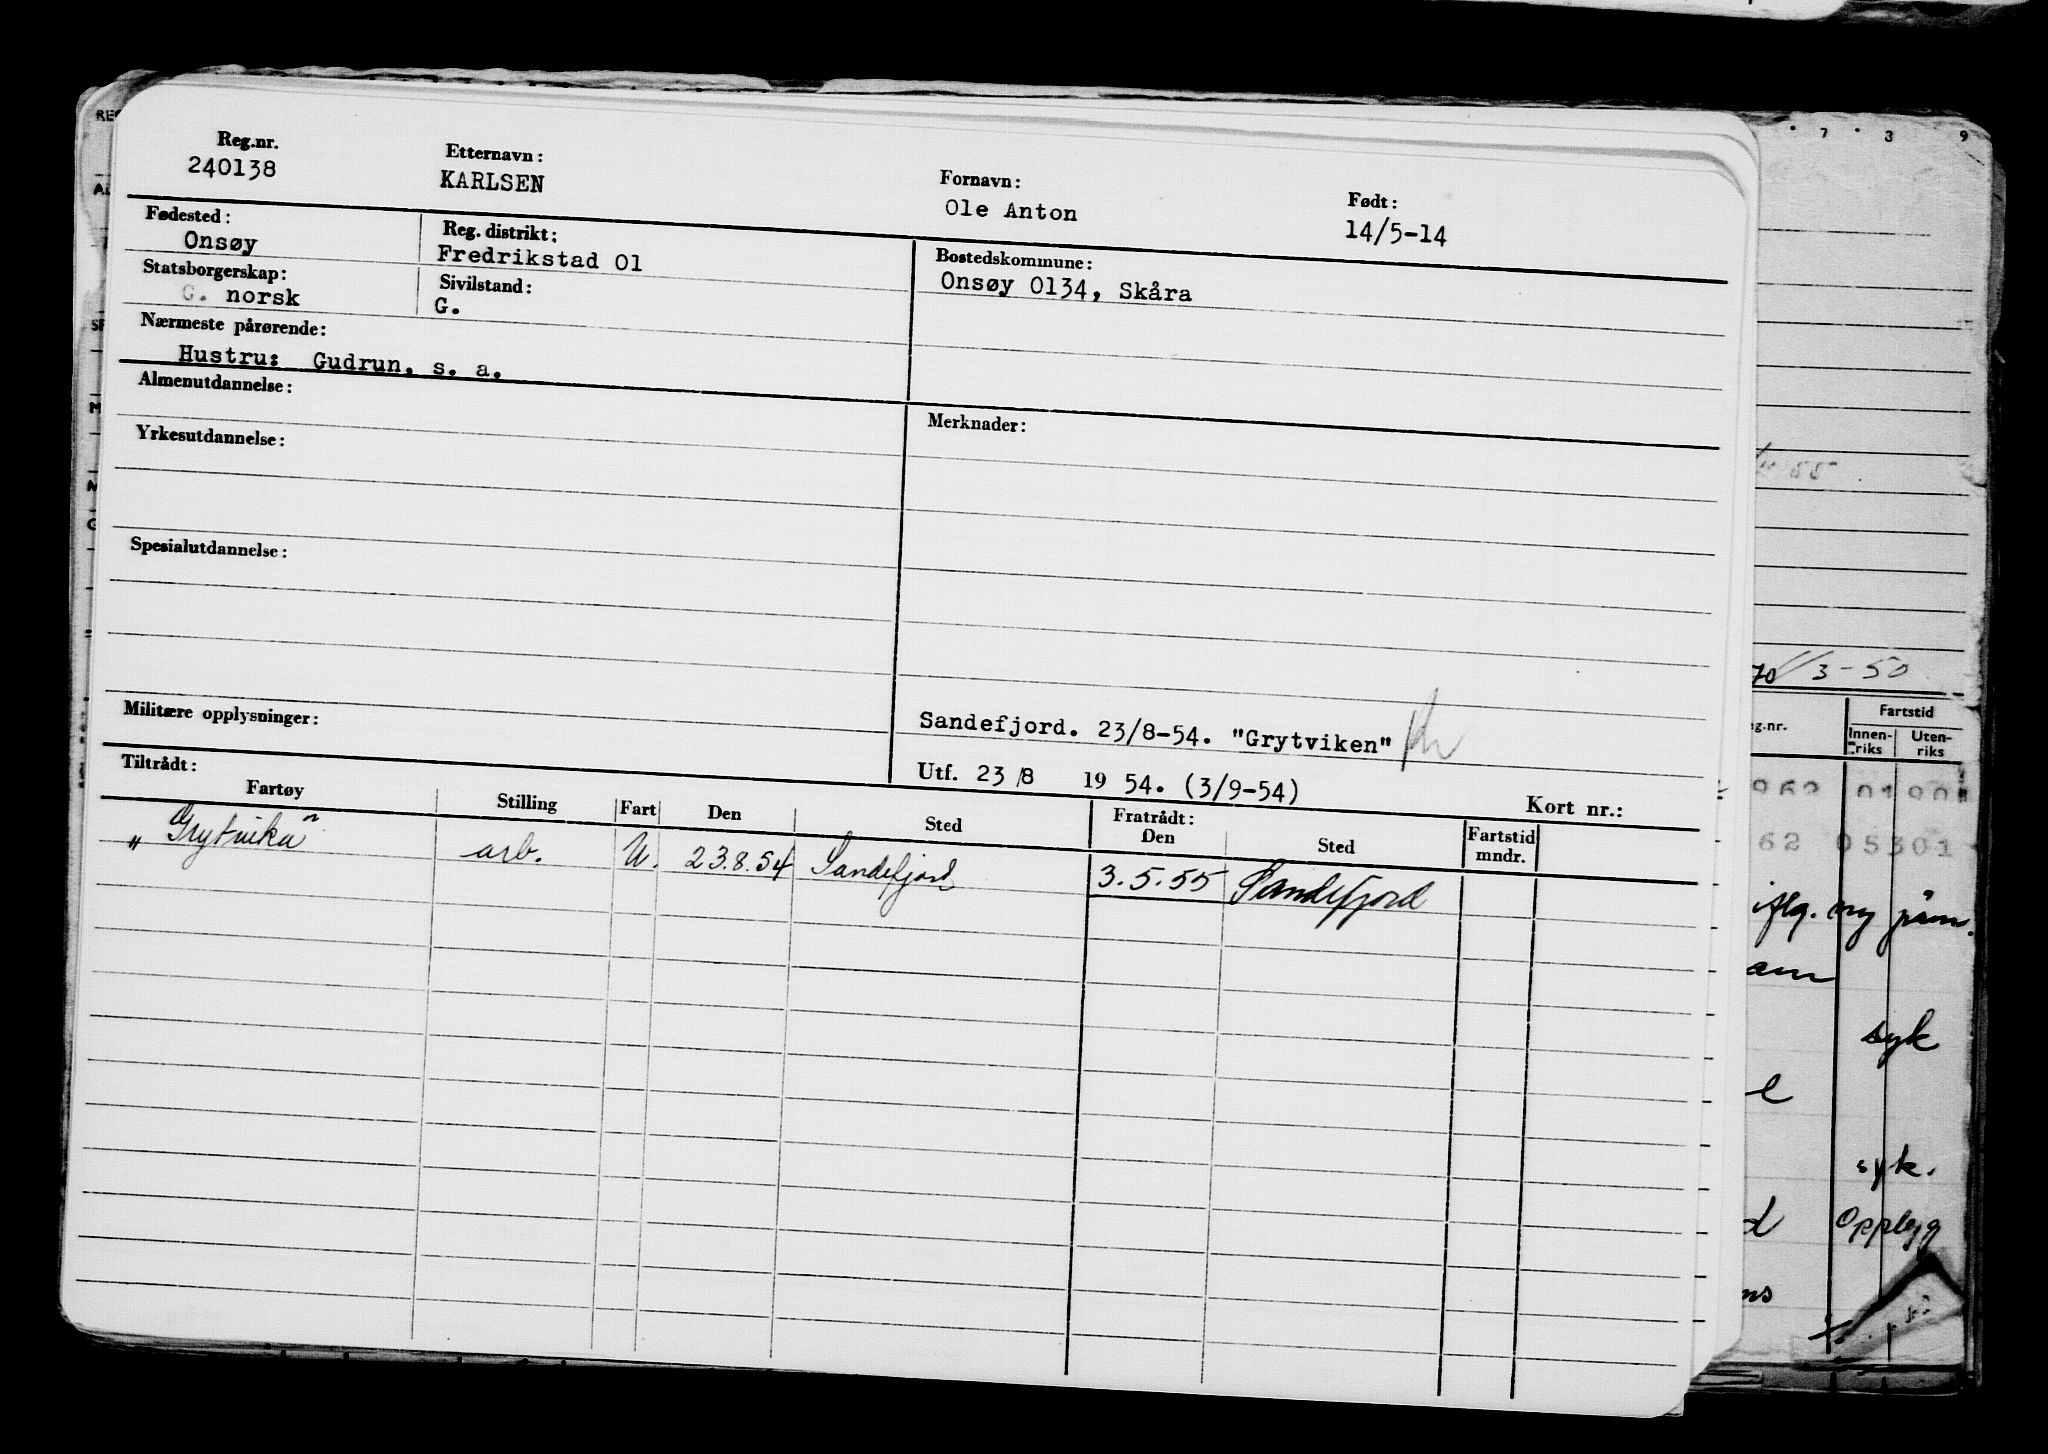 Reg.nr. Etternavn: Fornavn: Født:
240138 KARLSEN Ole Anton 14/5-14
Fødested: Reg. distrikt: Bostedskommune:
Onsøy Fredrikstad 01 Onsøy 0134, Skåra
Statsborgerskap: Sivilstand:
G. norsk G.
Nærmeste pårørende:
Hustru: Gudrun, s. a.
Almenutdannelse: Merknader:
Yrkesutdannelse:
Spesialutdannelse:
Militære opplysninger:
Sandefjord. 23/8-54. "Grytviken"
Utf. 23/8 19 54. (3/9-54) Kort nr.:
Tiltrådt: Fratrådt:
Fartøy Stilling Fart Den Sted Den Sted Fartstid mndr.
„Grytvika" arb. U. 23.8.54 Sandefjord 3.5.55 Sandefjord
7 8 9
55
70 1/3-50
g.nr. Fartstid
Innenriks Utenriks
62 05301
iflg. ny påm.
syk
syk.
Opplegg